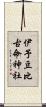 伊予豆比古命神社